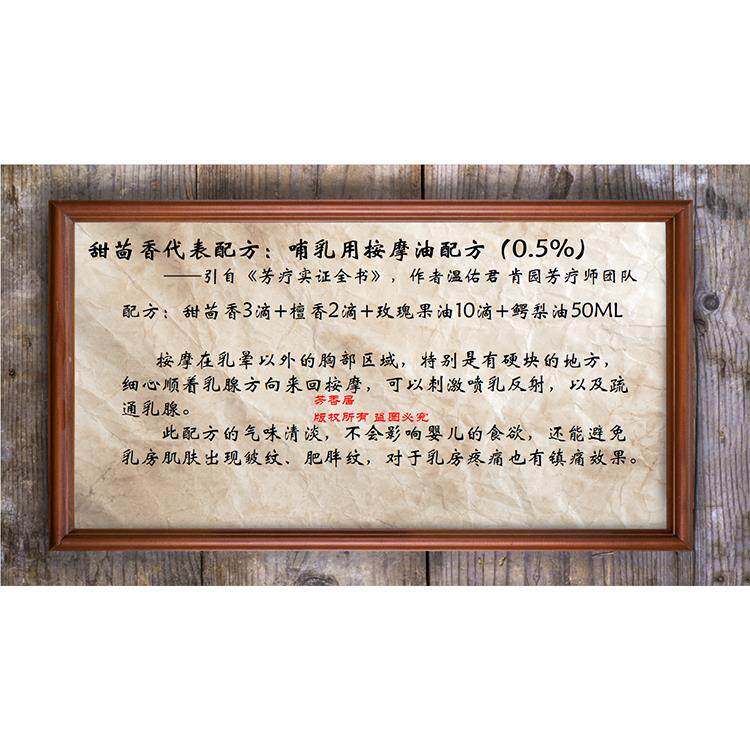 甜茴香代表配方：哺乳用按摩油配方（0.5%）
——引自《芳疗实证全书》，作者温佑君 肯园芳疗师团队
配方：甜茴香3滴+檀香2滴+玫瑰果油10滴+鳄梨油50ML
按摩在乳晕以外的胸部区域，特别是有硬块的地方，
细心顺着乳腺方向来回按摩，可以刺激喷乳反射，以及疏
通乳腺。
芳香居
版权所有 盗图必究
此配方的气味清淡，不会影响婴儿的食欲，还能避免
乳房肌肤出现皱纹、肥胖纹，对于乳房疼痛也有镇痛效果。